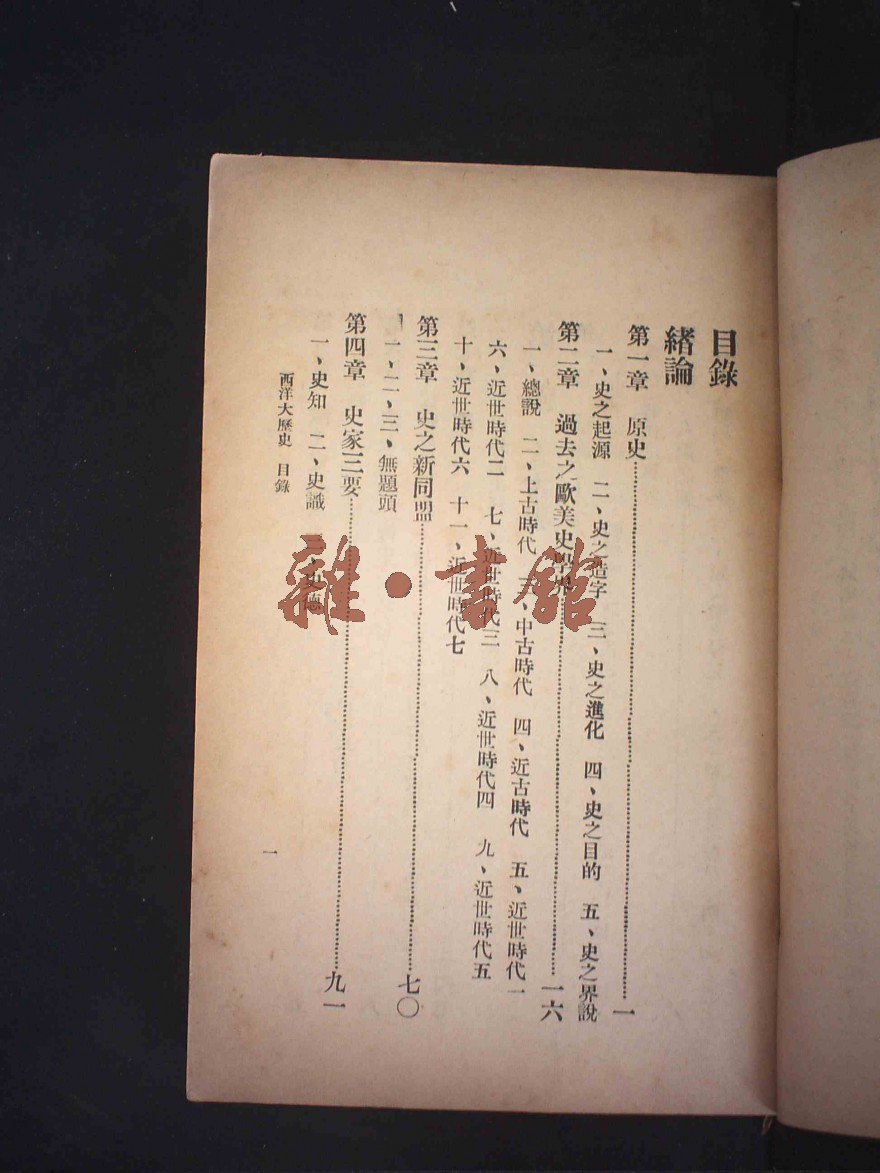 目錄
緒論
第一章　原史…………一
一、史之起源　二、史之造字　三、史之進化　四、史之目的　五、史之界說
第二章　過去之歐美史學界…………一六
一、總說　二、上古時代　三、中古時代　四、近古時代　五、近世時代一
六、近世時代二　七、近世時代三　八、近世時代四　九、近世時代五
十、近世時代六　十一、近世時代七
第三章　史之新同盟…………七〇
一、二、三、無題頭
第四章　史家三要…………九一
一、史知　二、史識　三、史德
西洋大歷史　目錄
一
雜·書館